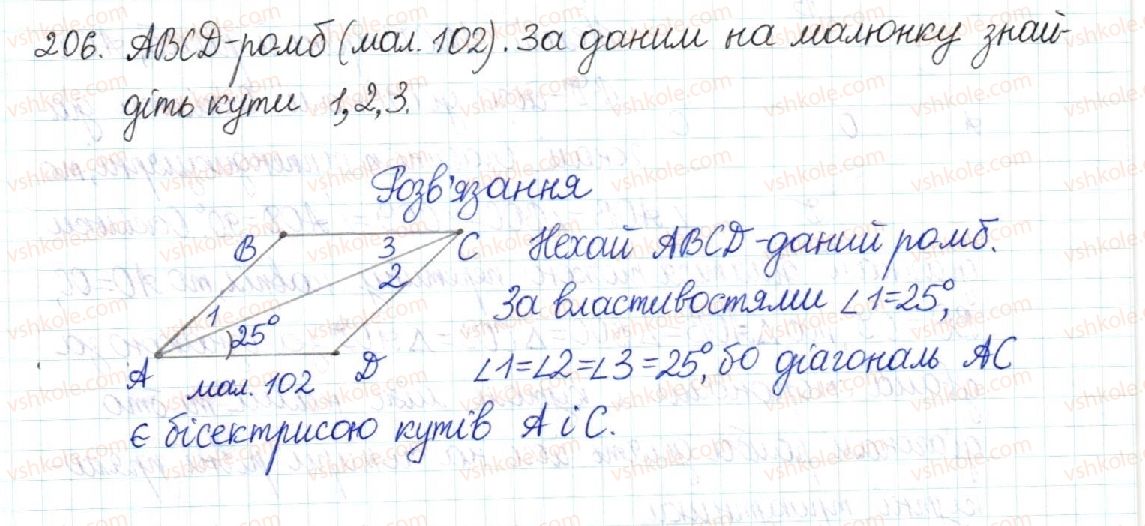 206. ABCD-ромб (мал. 102). За даним на малюнку знай-
діть кути 1,2,3.
Розв'язання
B
3
C
2
1
25°
A
D
мал. 102
Нехай ABCD-даний ромб.
За властивостями ∠1=25°,
∠1=∠2=∠3=25°, бо діагональ AC
є бісектрисою кутів A і C.